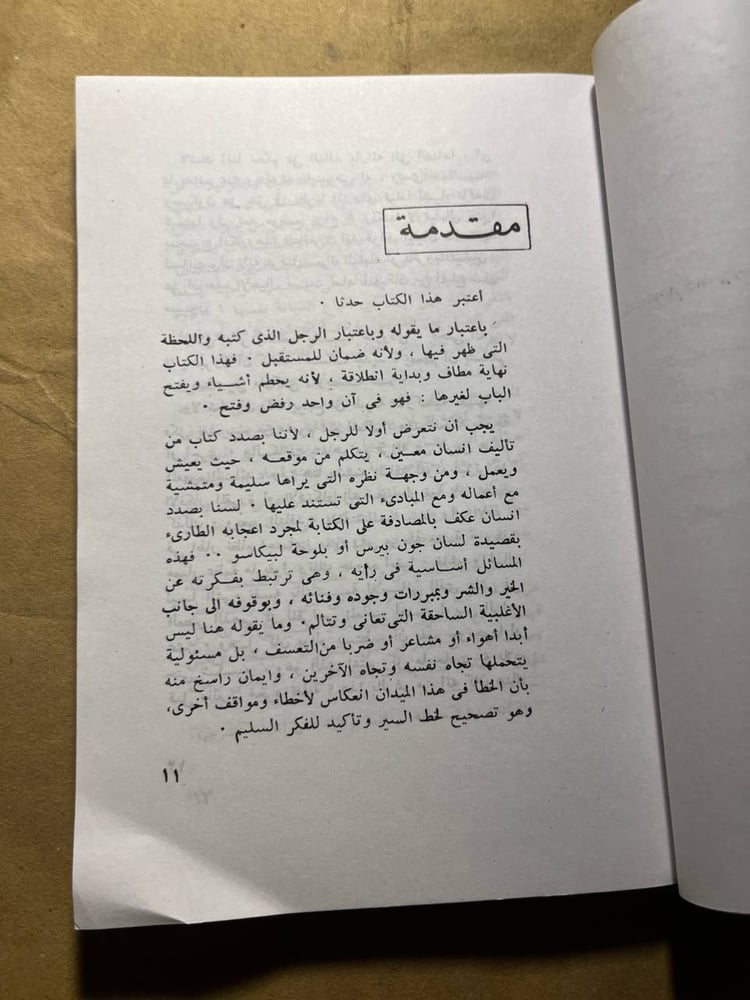 مقدمة
أعتبر هذا الكتاب حدثا .
باعتبار ما يقوله وباعتبار الرجل الذى كتبه واللحظة
التى ظهر فيها ، ولأنه ضمان للمستقبل . فهذا الكتاب
نهاية مطاف وبداية انطلاقة ، لأنه يحطم أشياء ويفتح
الباب لغيرها : فهو فى آن واحد رفض وفتح .
يجب أن نتعرض أولا للرجل ، لأننا بصدد كتاب من
تأليف انسان معين ، يتكلم من موقعه ، حيث يعيش
ويعمل ، ومن وجهة نظره التى يراها سليمة ومتمشية
مع أعماله ومع المبادىء التى تستند عليها . لسنا بصدد
انسان عكف بالمصادفة على الكتابة لمجرد اعجابه الطارىء
بقصيدة لسان جون بيرس أو بلوحة لبيكاسو .. فهذه
المسائل أساسية فى رأيه ، وهى ترتبط بفكرته عن
الخير والشر وبمبررات وجوده وفنائه ، وبوقوفه الى جانب
الأغلبية الساحقة التى تعانى وتتألم . وما يقوله هنا ليس
أبدا أهواء أو مشاعر أو ضربا من التعسف ، بل مسئولية
يتحملها تجاه نفسه وتجاه الآخرين ، وايمان راسخ منه
بأن الخطأ فى هذا الميدان انعكاس لأخطاء ومواقف أخرى،
وهو تصحيح لخط السير وتأكيد للفكر السليم .
١١